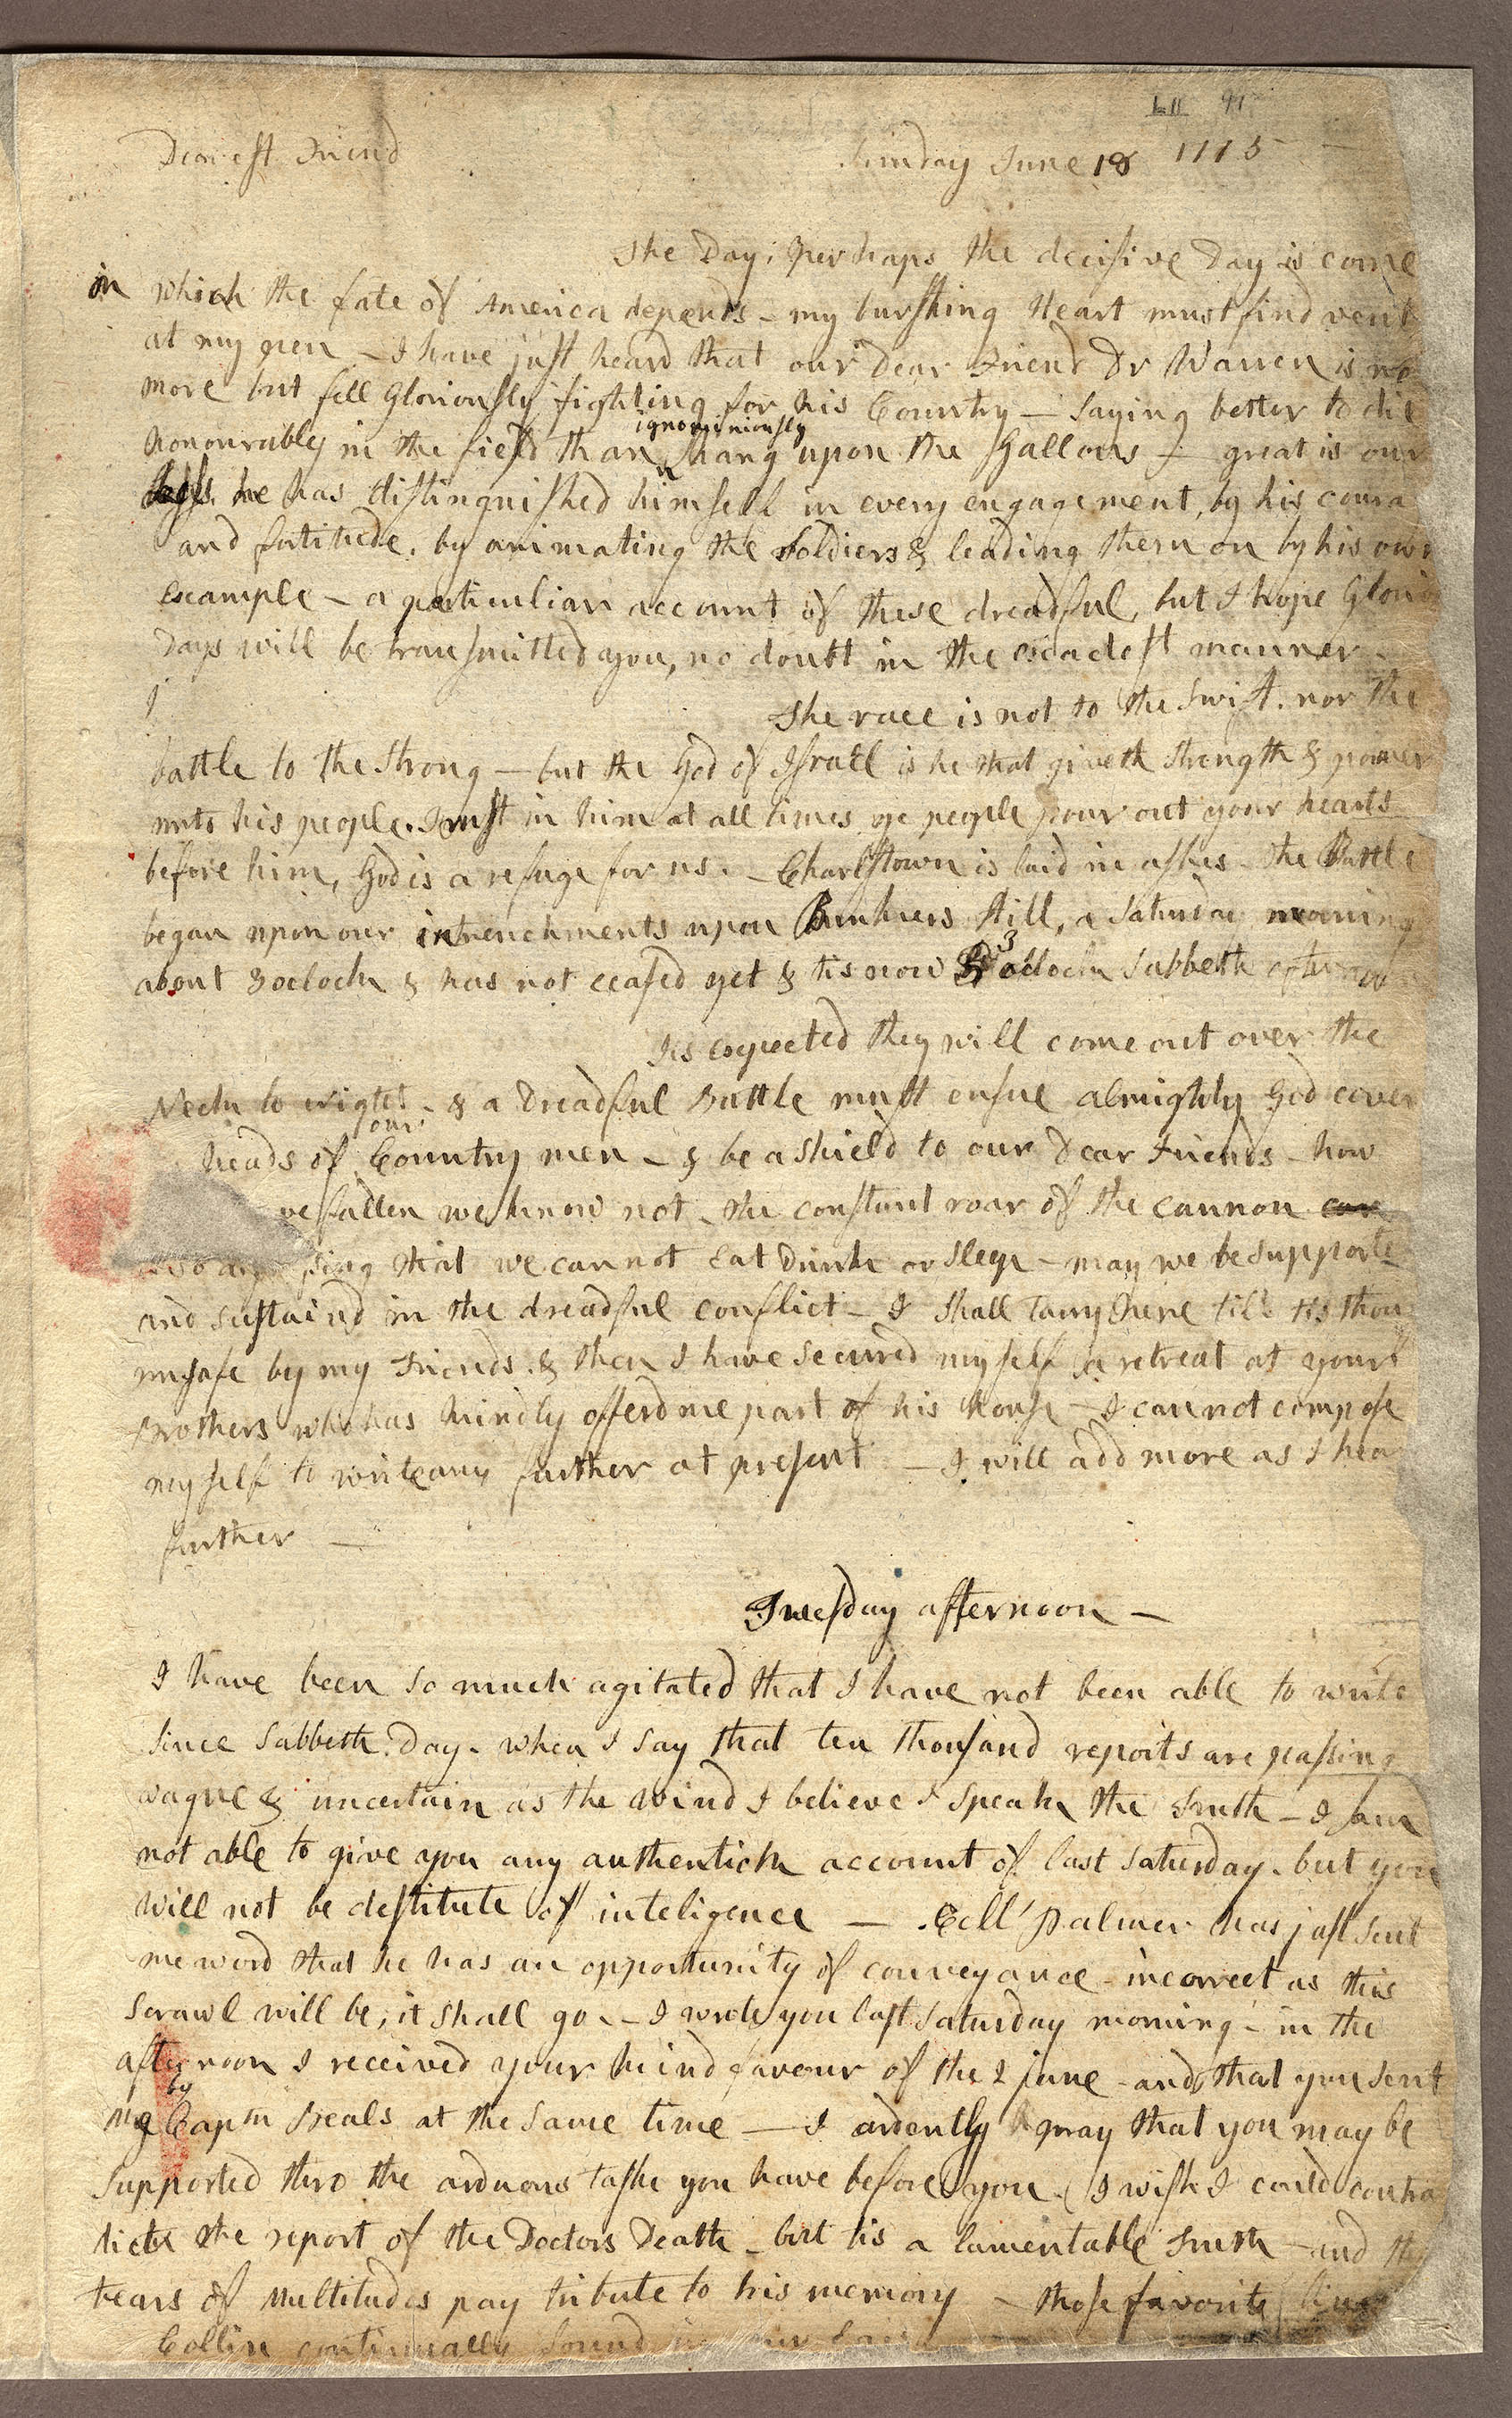 LII 91
Dearest Friend
Sunday June 18 1775
The Day; perhaps the decisive Day is come
in which the fate of America depends - my bursting Heart must find vent
at my pen - I have just heard that our Dear Friend Dr Warren is no
more but fell Gloriously fighting for his Country - saying better to die
honourably in the field than ignominiously hang upon the Gallows - great is our
Loss. he has distinguished himself in every engagement, by his coura
and fortitude. by animating the Soldiers & leading them on by his own
example - a particuliar account of these dreadful, but I hope Glorio
Days will be transmitted you, no doubt in the exactest manner -
The race is not to the swift. nor the
battle to the strong - but the God of Israel is he that giveth strength & power
unto his people. Trust in him at all times, ye people pour out your hearts
before him, God is a refuge for us. - Charlstown is laid in ashes - the Battle
began upon our intrenchments upon Bunkers Hill, a Saturday morning
about 3 oclock & has not ceased yet & tis now 3 oclock Sabbeth
Tis expected they will come out over the
Neck to night - & a Dreadful Battle must ensue almighty God cover
heads of our Country men - & be a shield to our Dear Friends - how
ve fallen we know not - the constant roar of the cannon
sing that we cannot Eat Drink or Sleep - may we be supporte
and sustaind in the dreadful conflict - I shall tarry here till tis thou
unsafe by my Friends. & then I have secured myself a retreat at your
Brothers who has kindly offerd me part of his house - I cannot compose
myself to write any further at present - I will add more as I hear
further -
Tuesday afternoon -
I have been so much agitated that I have not been able to write
since Sabbeth. Day - when I say that ten thousand reports are passing
vague & uncertain as the wind I believe I speak the Truth - I am
not able to give you any authentick account of last Saturday - but you
will not be destitute of inteligence - Coll' Palmer has just sent
me word that he has an opportunity of conveyance - incorrect as this
scrawl will be, it shall go - I wrote you last Saturday morning - in the
afternoon I received your kind favour of the 2 june - and that you sent
me by Captn Beals at the same time - I ardently pray that you may be
supported thro the arduous taske you have before you. I wish I could contra
dict the report of the Doctors Death - but tis a lamentable Truth - and the
tears of Multitudes pay tribute to his memory - those favorite lines
Collin continually sound in my Ears